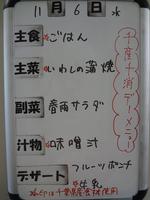 11月6日 水
千産千消デーメニュー
主食 ごはん
主菜 いわしの蒲焼
副菜 春雨サラダ
汁物 味噌汁
デザート フルーツポンチ
牛乳
※印は千葉県産食材使用